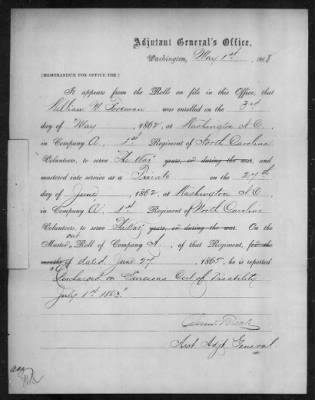 Adjutant General's Office,
Washington, May 1st, 1868
[MEMORANDUM FOR OFFICE USE.]
It appears from the Rolls on file in this Office, that
William W. Freeman was enrolled in the 3rd
day of May, 1862, at Washington N.C.
in Company A, 1st Regiment of North Carolina
Volunteers, to serve years, or during the war, and
mustered into service as a Private on the 27th
day of June, 1862, at Washington N.C.
in Company A, 1st Regiment of North Carolina
Volunteers, to serve years, or during the war. On the
Muster out Roll of Company A, of that Regiment, for the
months of dated June 27, 1865, he is reported
Discharged on Surgeons Cert of Disability
July 1st 1863.
Asst Adjt General